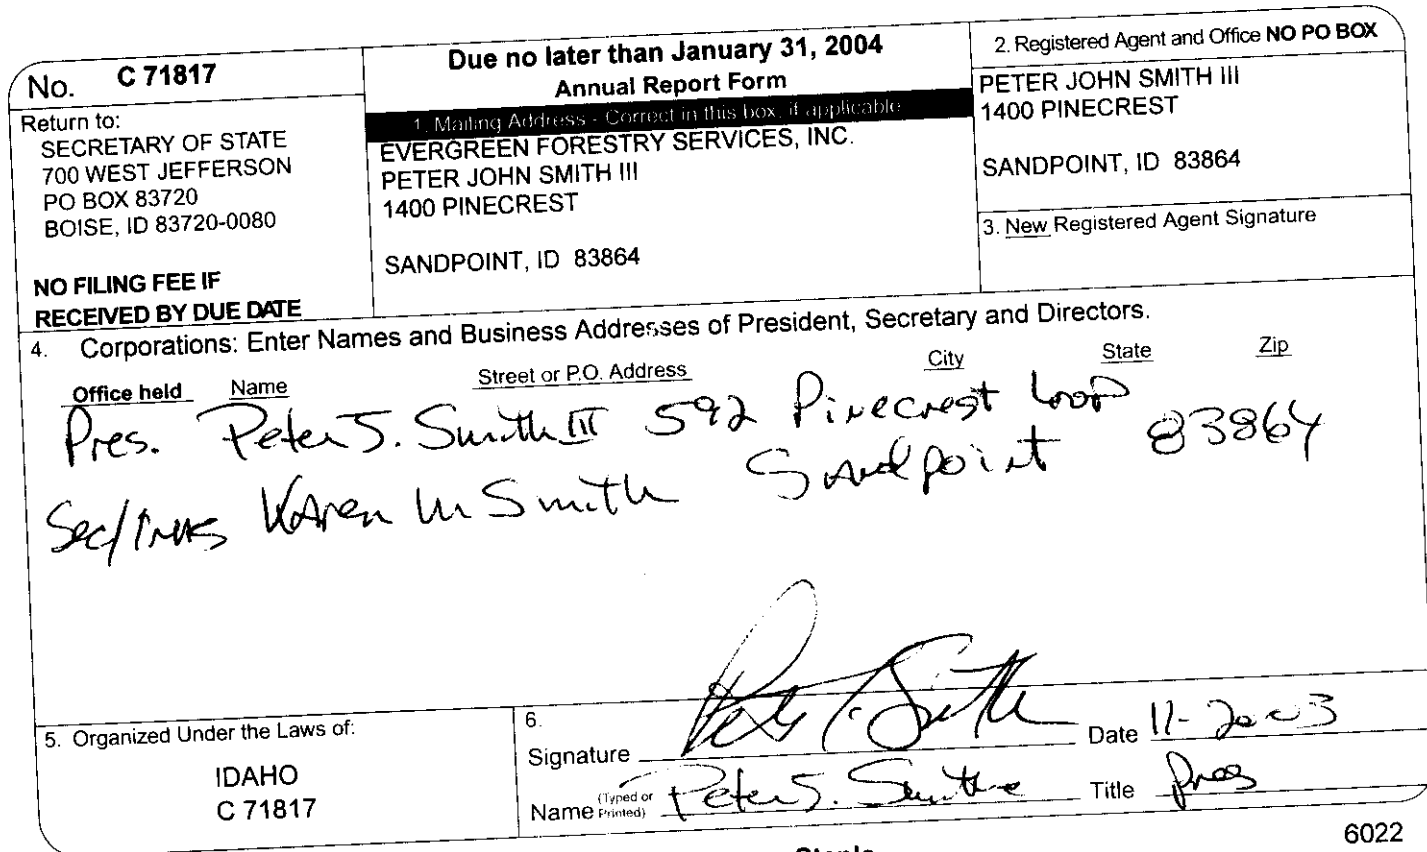 No. C 71817
Return to:
SECRETARY OF STATE
700 WEST JEFFERSON
PO BOX 83720
BOISE, ID 83720-0080
NO FILING FEE IF
RECEIVED BY DUE DATE
Due no later than January 31, 2004
Annual Report Form
1. Mailing Address - Correct in this box, if applicable
EVERGREEN FORESTRY SERVICES, INC.
PETER JOHN SMITH III
1400 PINECREST
SANDPOINT, ID 83864
2. Registered Agent and Office NO PO BOX
PETER JOHN SMITH III
1400 PINECREST
SANDPOINT, ID 83864
3. New Registered Agent Signature
4. Corporations: Enter Names and Business Addresses of President, Secretary and Directors.
Office held Name Street or P.O. Address City State Zip
Pres. Peter J. Smith III 592 Pinecrest Loop
Sec/ Karen M Smith Sandpoint 83864
5. Organized Under the Laws of:
IDAHO
C 71817
6.
Signature Peter J. Smith Date 11-20-03
Name (Typed or Printed) Peter J. Smith Title Pres
6022